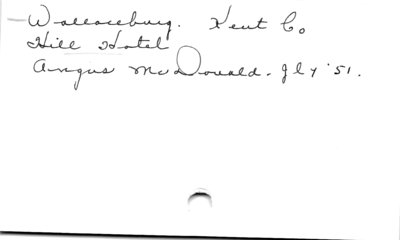 Wallaceburg. Kent Co
Hill Hotel
Angus McDonald. Jly '51.